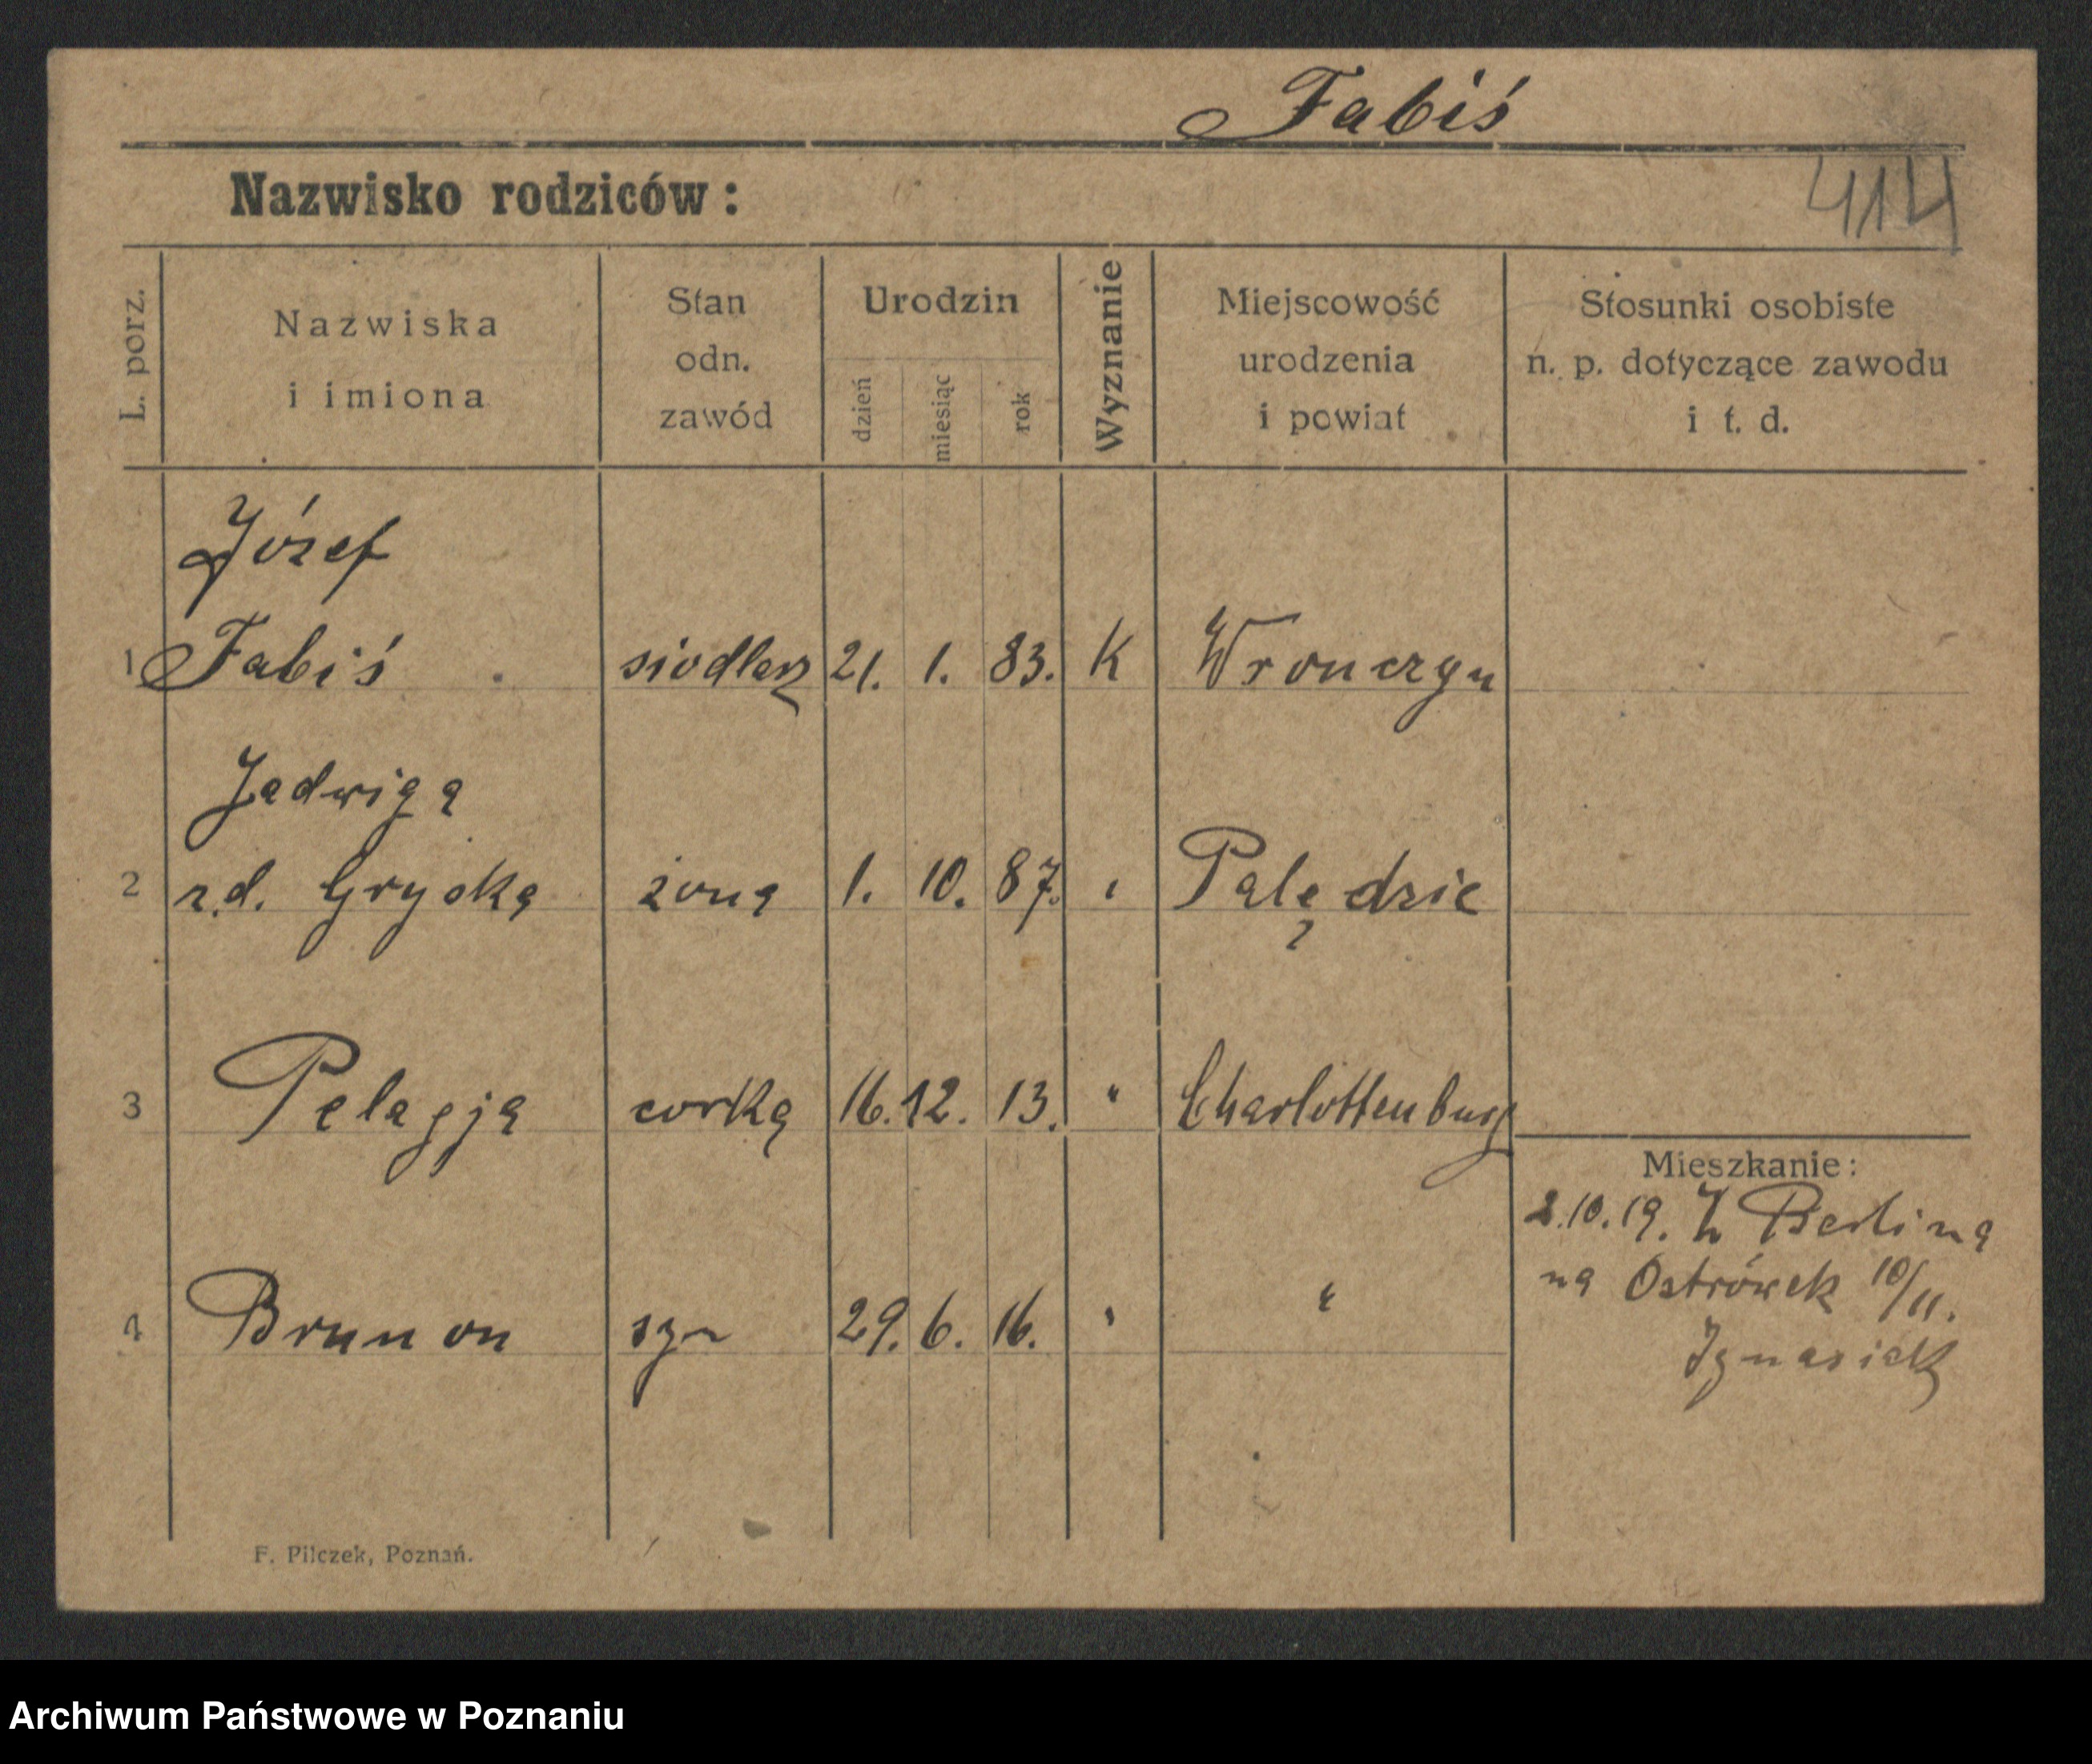 Fabiś
Nazwisko rodziców:
414
L. porz.
Nazwiska
i imiona
Stan
odn.
zawód
Urodzin
dzień
miesiąc
rok
Wyznanie
Miejscowość
urodzenia
i powiat
Stosunki osobiste
n. p. dotyczące zawodu
i t. d.
Józef
1 Fabiś siodlarz 21. 1. 83. K Wronczyn
Jadwiga
2 r.d. żona 1. 10. 87. " Palędzie
3 Pelagja corka 16. 12. 13. " Charlottenburg
Mieszkanie:
2.10.19. Z Berlina
na Ostrówek 10/11.
Ignasiak
4 Brunon syn 29. 6. 16. " "
F. Pilczek, Poznań.
Archiwum Państwowe w Poznaniu